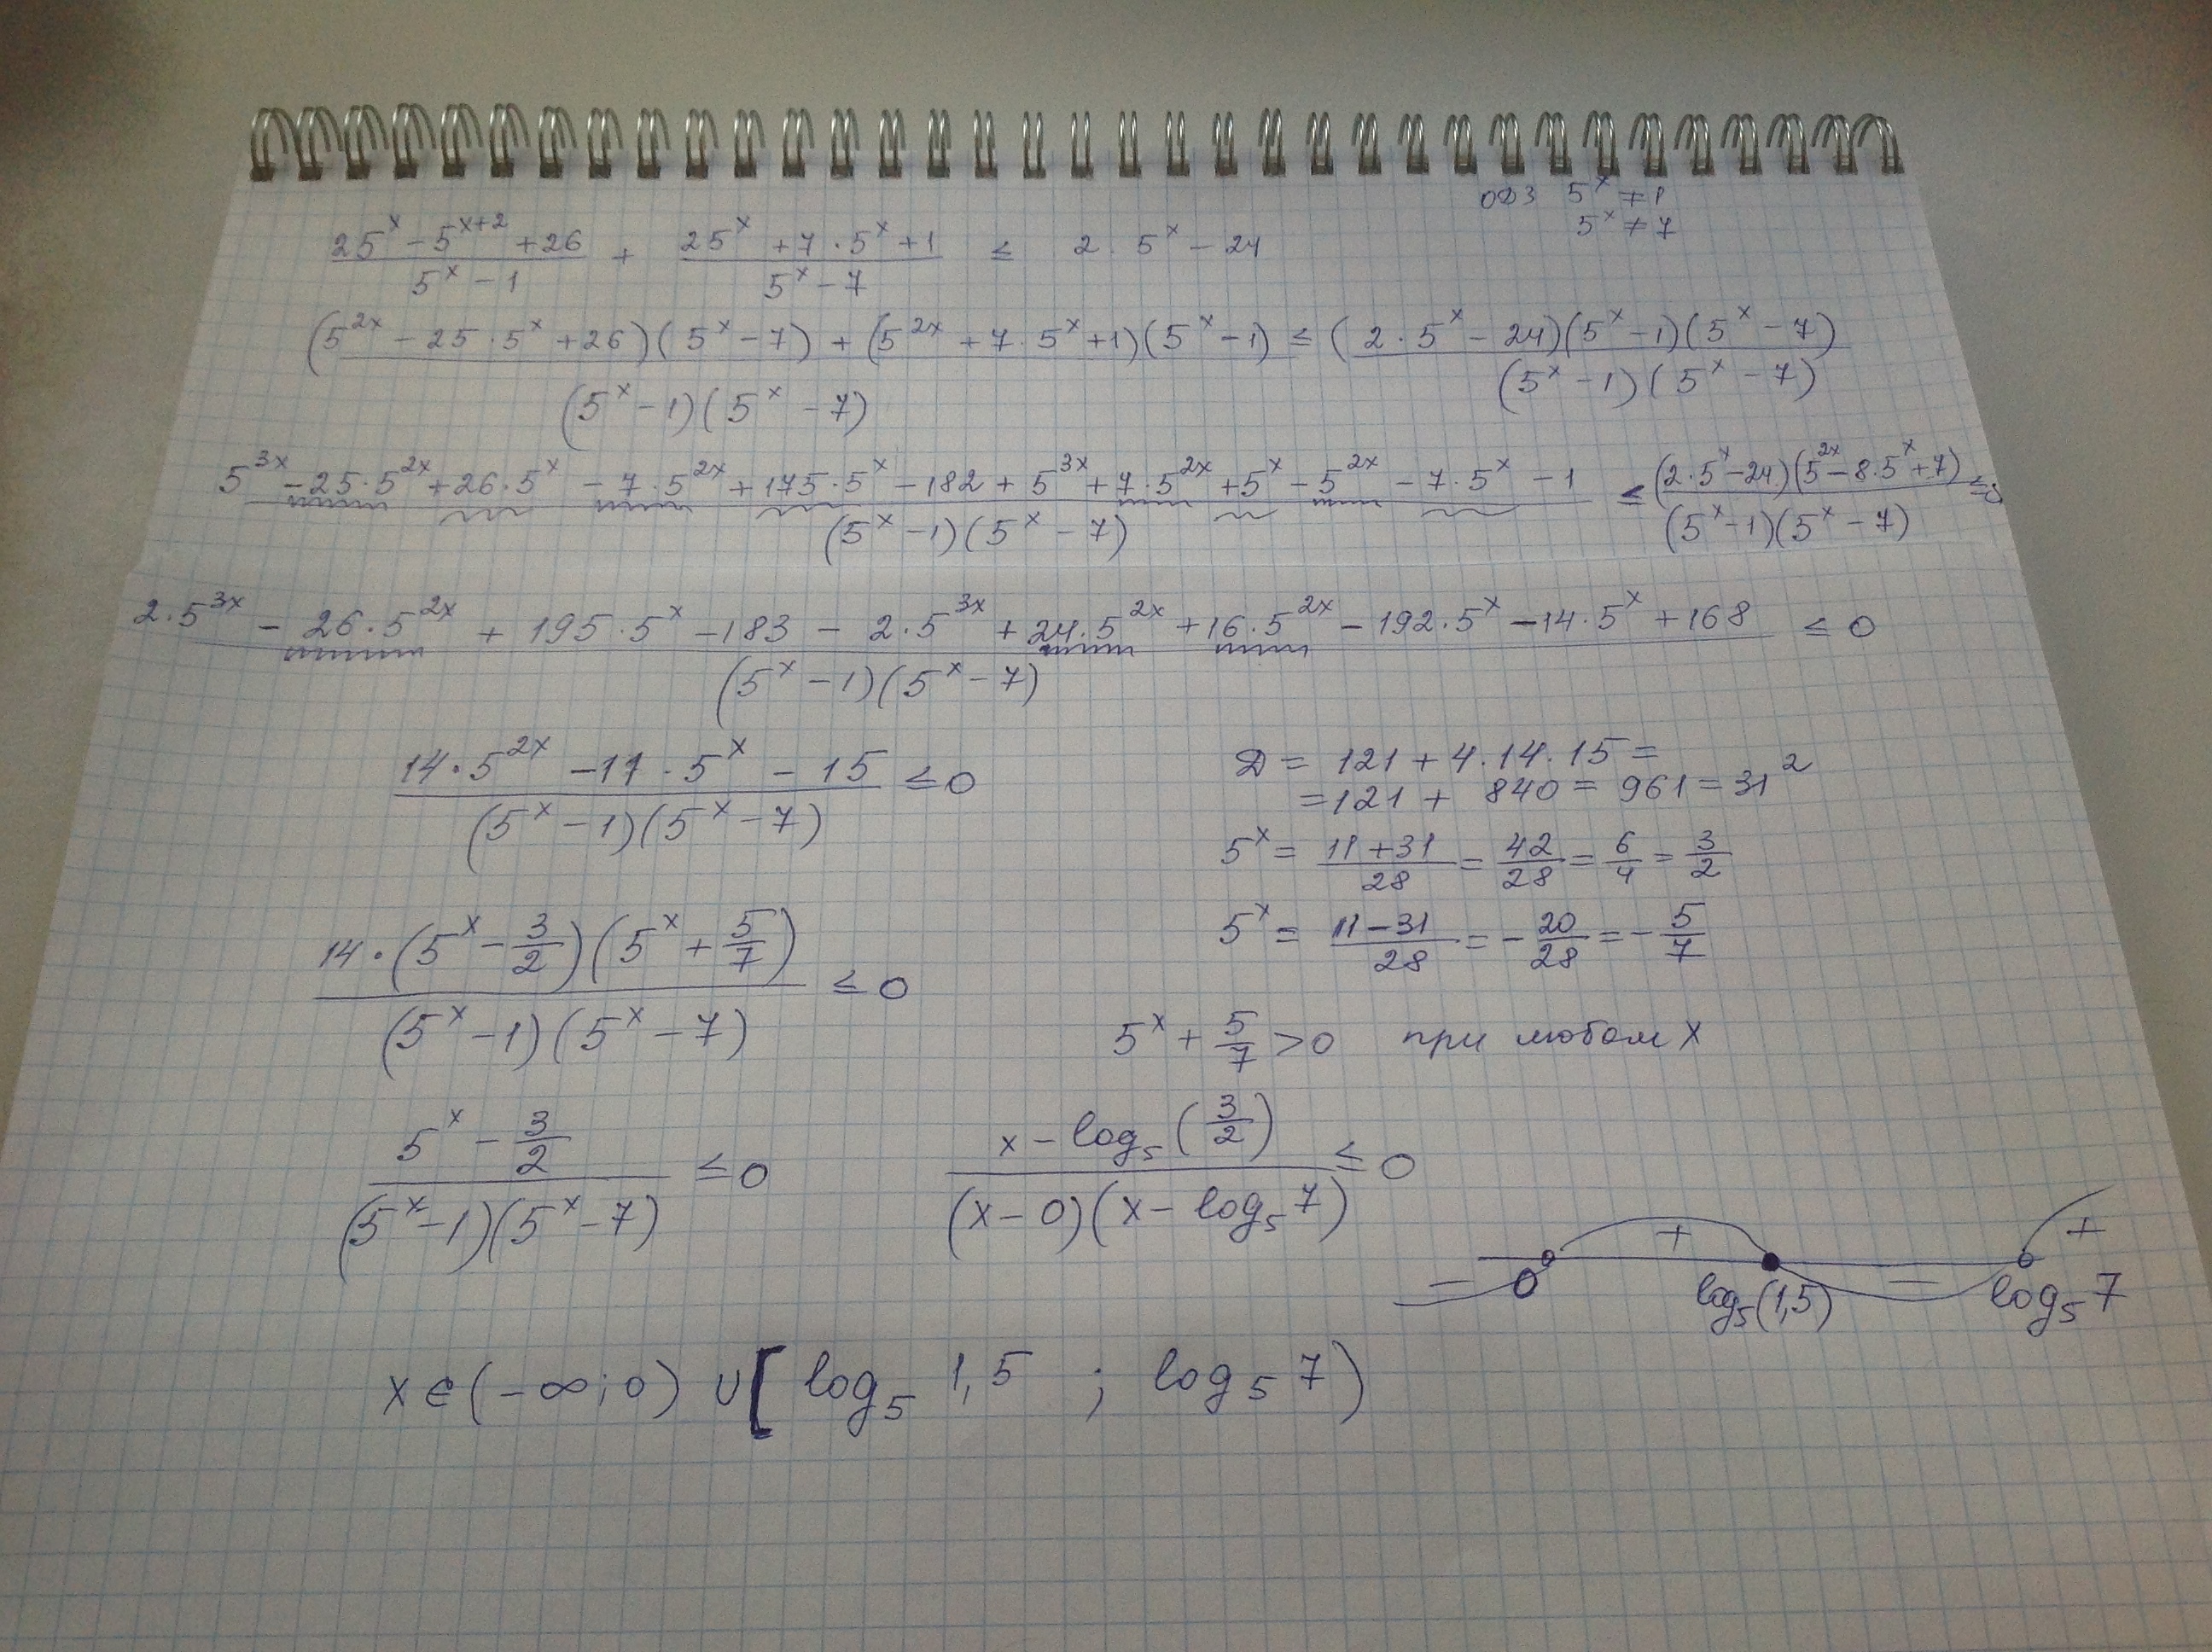 ОДЗ 5^x ≠ 1
5^x ≠ 7
(25^x − 5^(x+2) + 26)/(5^x − 1) + (25^x + 7·5^x + 1)/(5^x − 7) ≤ 2·5^x − 24
((5^(2x) − 25·5^x + 26)(5^x − 7) + (5^(2x) + 7·5^x + 1)(5^x − 1))/((5^x − 1)(5^x − 7)) ≤ ((2·5^x − 24)(5^x − 1)(5^x − 7))/((5^x − 1)(5^x − 7))
(5^(3x) − 25·5^(2x) + 26·5^x − 7·5^(2x) + 175·5^x − 182 + 5^(3x) + 7·5^(2x) + 5^x − 5^(2x) − 7·5^x − 1)/((5^x − 1)(5^x − 7)) ≤ ((2·5^x − 24)(5^(2x) − 8·5^x + 7))/((5^x − 1)(5^x − 7))
(2·5^(3x) − 26·5^(2x) + 195·5^x − 183 − 2·5^(3x) + 24·5^(2x) + 16·5^(2x) − 192·5^x − 14·5^x + 168)/((5^x − 1)(5^x − 7)) ≤ 0
(14·5^(2x) − 11·5^x − 15)/((5^x − 1)(5^x − 7)) ≤ 0
Д = 121 + 4·14·15 =
= 121 + 840 = 961 = 31^2
5^x = (11 + 31)/28 = 42/28 = 6/4 = 3/2
5^x = (11 − 31)/28 = − 20/28 = − 5/7
(14·(5^x − 3/2)(5^x + 5/7))/((5^x − 1)(5^x − 7)) ≤ 0
5^x + 5/7 > 0 при любом x
(5^x − 3/2)/((5^x − 1)(5^x − 7)) ≤ 0
(x − log₅(3/2))/((x − 0)(x − log₅7)) ≤ 0
− + − +
0 log₅(1,5) log₅7
x ∈ (−∞; 0) ∪ [log₅ 1,5 ; log₅ 7)